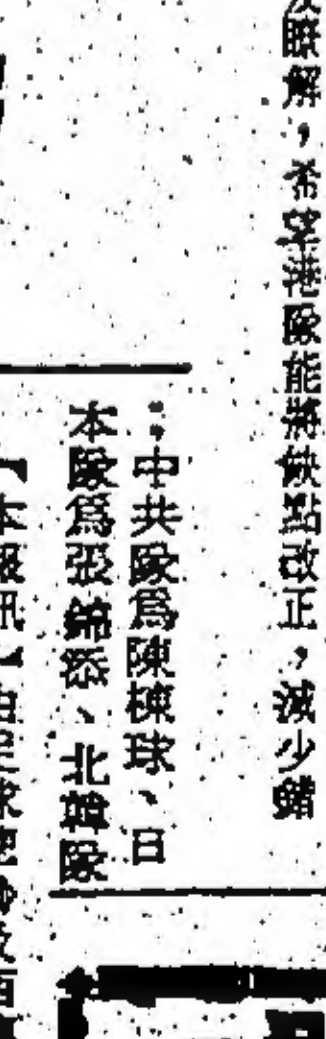 瞭解，希望港隊能將缺點改正，減少錯
：中共隊爲陳棟球、日
本隊爲張錦添、北韓隊
【本報訊】由足球